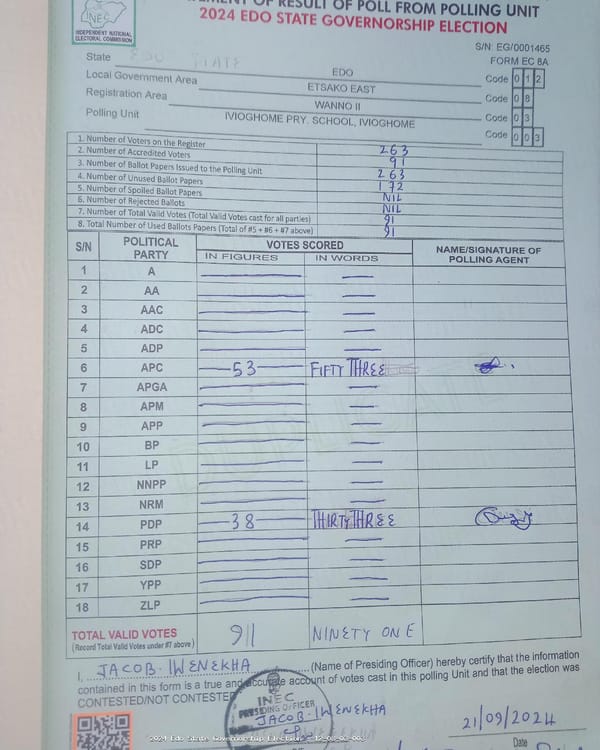 INEC
INDEPENDENT NATIONAL
ELECTORAL COMMISSION
OF RESULT OF POLL FROM POLLING UNIT
2024 EDO STATE GOVERNORSHIP ELECTION
S/N: EG/0001465
FORM EC 8A
State EDO Code 0 1 2
Local Government Area ETSAKO EAST Code 0 8
Registration Area WANNO II Code 0 3
Polling Unit IVIOGHOME PRY. SCHOOL, IVIOGHOME Code 0 0 3
1. Number of Voters on the Register 263
2. Number of Accredited Voters 91
3. Number of Ballot Papers Issued to the Polling Unit 263
4. Number of Unused Ballot Papers 172
5. Number of Spoiled Ballot Papers NIL
6. Number of Rejected Ballots NIL
7. Number of Total Valid Votes (Total Valid Votes cast for all parties) 91
8. Total Number of Used Ballots Papers (Total of #5 + #6 + #7 above) 91
S/N POLITICAL PARTY VOTES SCORED NAME/SIGNATURE OF POLLING AGENT
IN FIGURES IN WORDS
1 A
2 AA
3 AAC
4 ADC
5 ADP
6 APC 53 FIFTY THREE
7 APGA
8 APM
9 APP
10 BP
11 LP
12 NNPP
13 NRM
14 PDP 38 THIRTY THREE
15 PRP
16 SDP
17 YPP
18 ZLP
TOTAL VALID VOTES 91 NINETY ONE
(Record Total Valid Votes under #7 above)
I, JACOB. IWENEKHA (Name of Presiding Officer) hereby certify that the information
contained in this form is a true and accurate account of votes cast in this polling Unit and that the election was
CONTESTED/NOT CONTESTED
INEC
PRESIDING OFFICER
JACOB. IWENEKHA
21/09/2024
Date
2024 Edo State Governorship Election